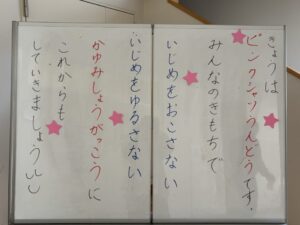 きょうは
ピンクシャツうんどうです。
みんなのきもちで
いじめをおこさない
いじめをゆるさない
かゆみしょうがっこうに
これからも
していきましょう